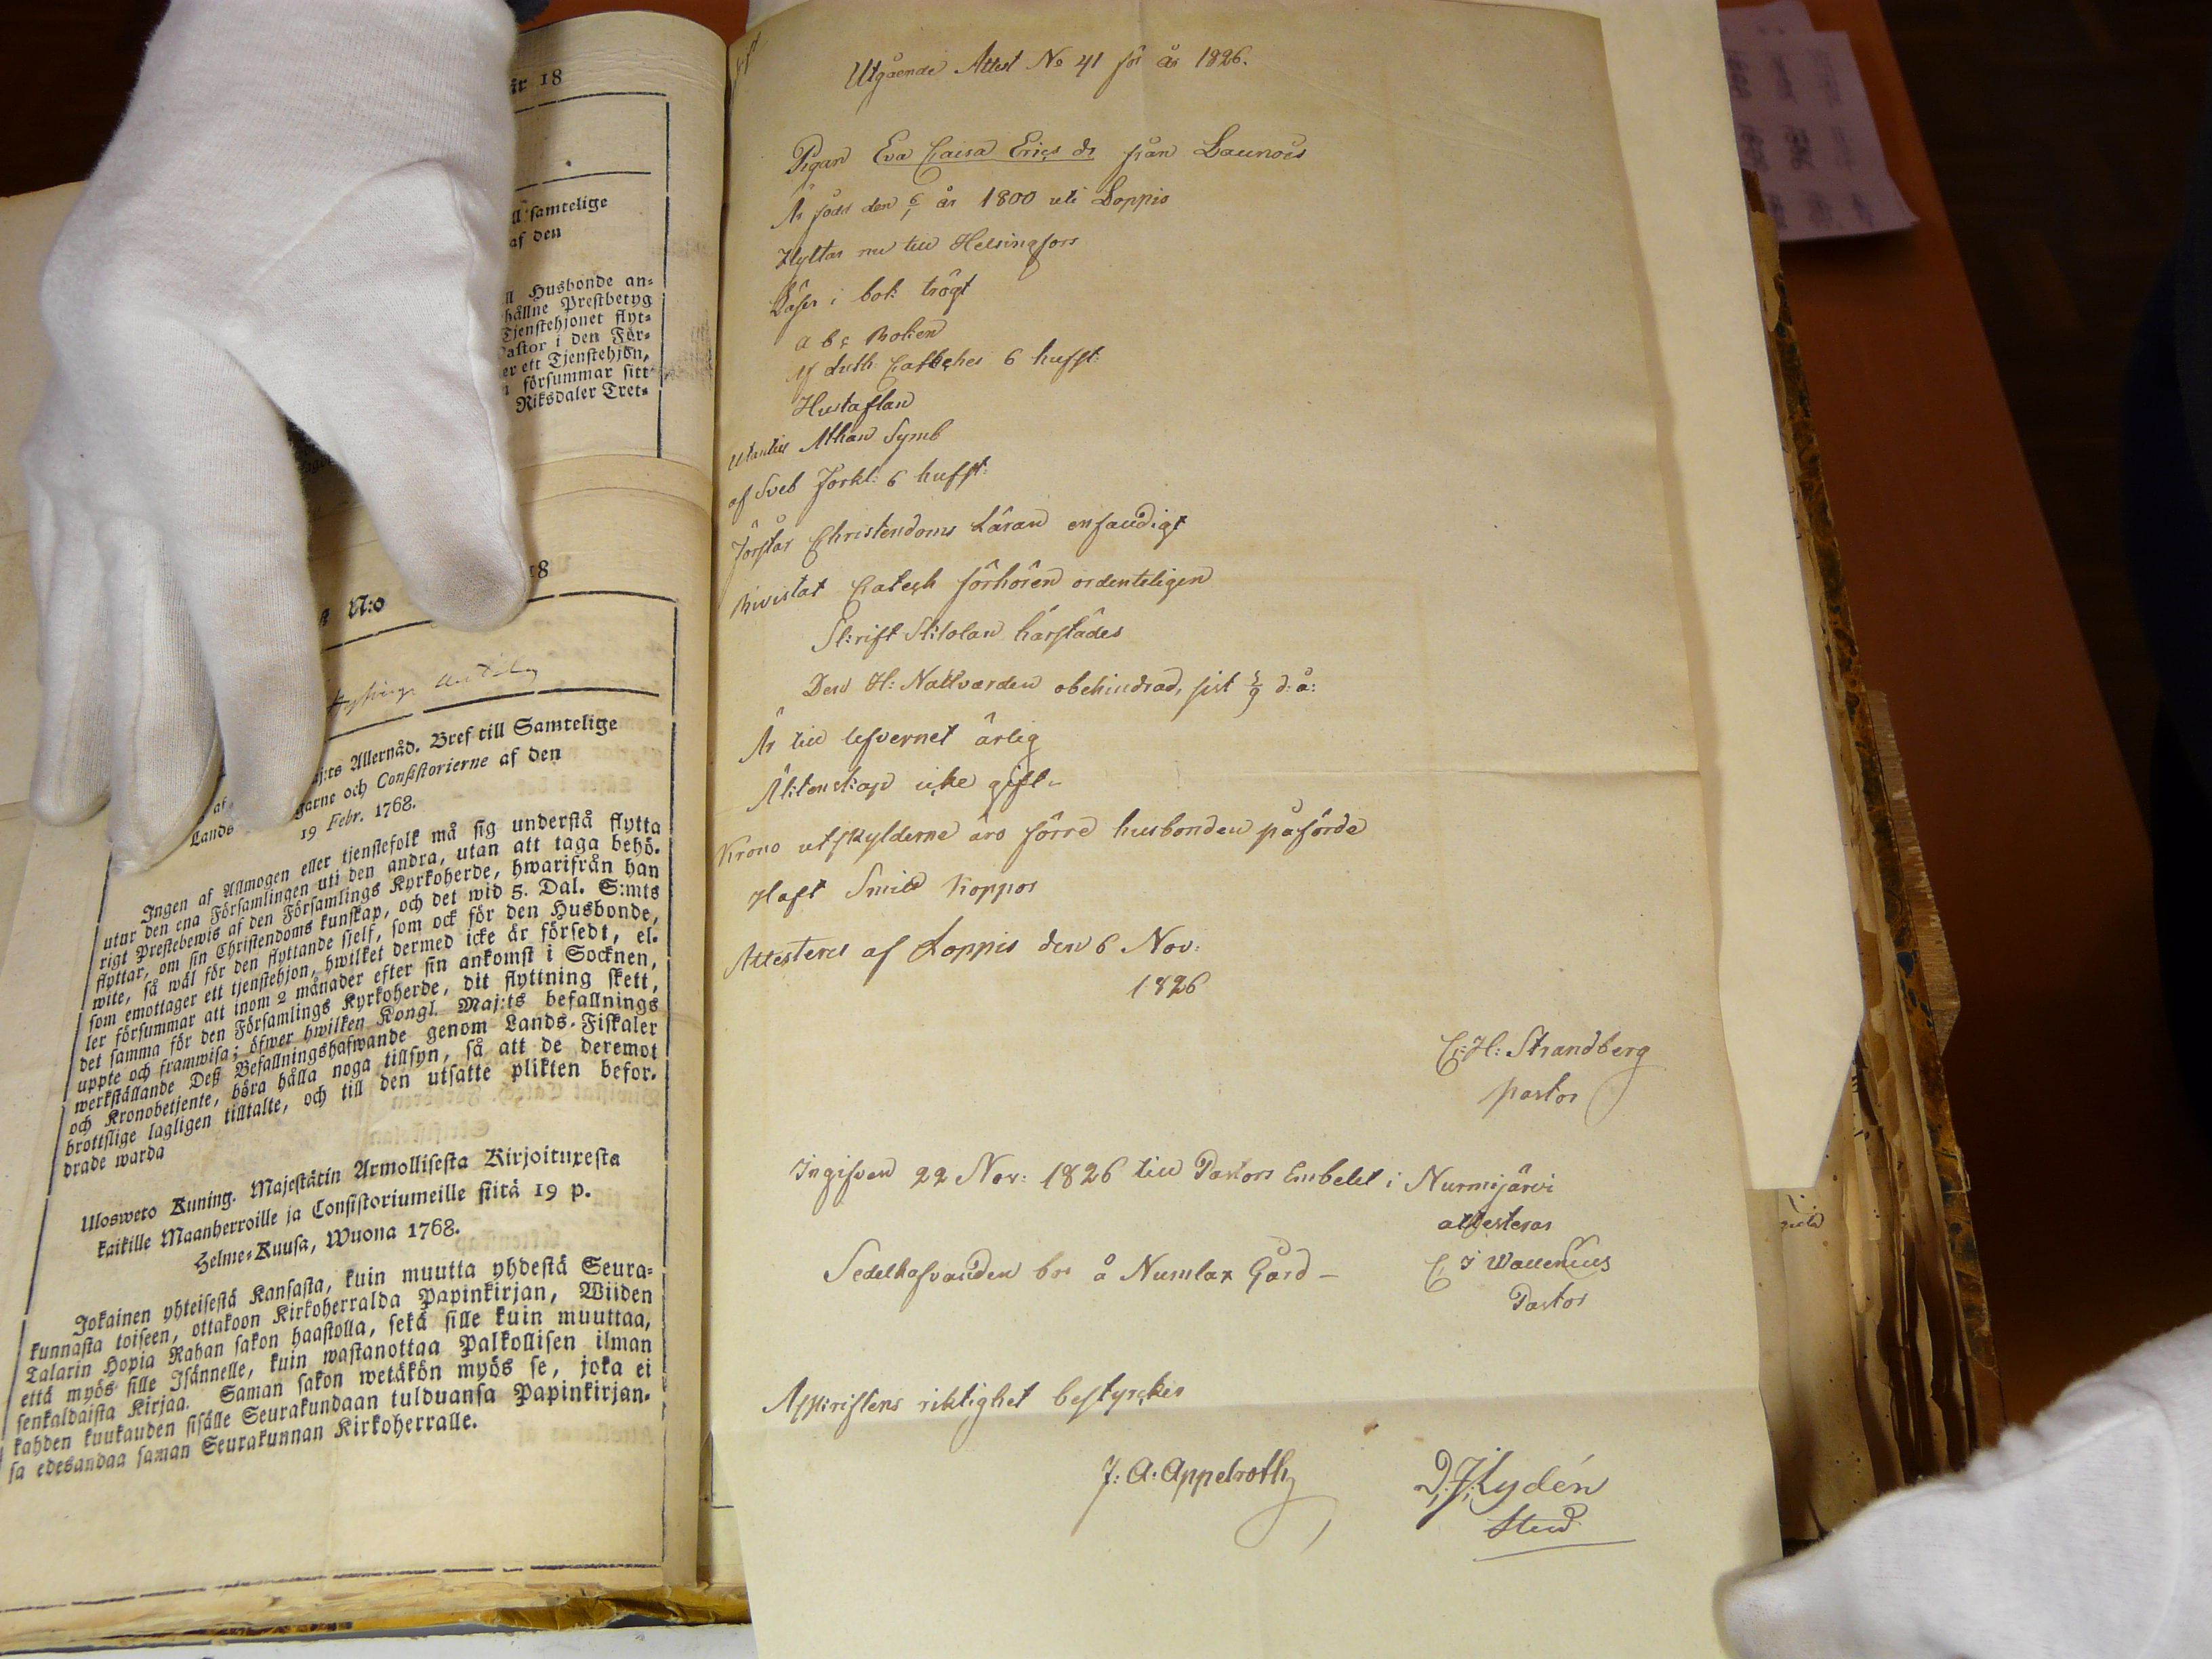 år 18
ll samtelige
af den
ll Husbonde an-
hållne Prestbetyg
Tjenstehjonet flyt-
Pastor i den För-
er ett Tjenstehjon,
försummar sitt
Riksdaler Tret-
18
N:o
aj:ts Allernåd. Bref till Samtelige
garne och Consistorierne af den
Lands
19 Febr. 1768.
Ingen af Allmogen eller tjenstefolk må sig understå flytta
utur den ena Församlingen uti den andra, utan att taga behö-
rigt Prestebewis af den Församlings Kyrkoherde, hwarifrån han
flyttar, om sin Christendoms kunskap, och det wid 5. Dal. S:mts
wite, så wäl för den flyttande sjelf, som ock för den Husbonde,
som emottager ett tjenstehjon, hwilket dermed icke är försedt, el-
ler försummar att inom 2 månader efter sin ankomst i Socknen,
det samma för den Församlings Kyrkoherde, dit flyttning skett,
uppte och framwisa; öfwer hwilken Kongl. Maj:ts befallnings
werkställande Deß Befallningshafwande genom Lands-Fiskaler
och Kronobetjente, böra hålla noga tillsyn, så att de deremot
brottslige lagligen tilltalte, och till den utsatte plikten befor-
drade warda
Ulosweto Kuning. Majestätin Armollisesta Kirjoituxesta
kaikille Maanherroille ja Consistoriumeille siitä 19 p.
Helme-Kuusa, Wuona 1768.
Jokainen yhteisestä Kansasta, kuin muutta yhdestä Seura-
kunnasta toiseen, ottakoon Kirkoherralda Papinkirjan, Wiiden
Talarin Hopia Rahan sakon haastolla, sekä sille kuin muuttaa,
että myös sille Isännelle, kuin wastanottaa Palkollisen ilman
senkaldaista Kirjaa. Saman sakon wetäkön myös se, joka ei
kahden kuukauden sisälle Seurakundaan tulduansa Papinkirjan-
sa edesandaa saman Seurakunnan Kirkoherralle.
Utgående Attest No 41 för år 1826.
Pigan Eva Caisa Erics dr från Launois
Är född den 6/1 år 1800 uti Loppis
Flyttar nu till Helsingfors
Läser i bok trögt
a b c Boken
af Luth Catheches 6 hufst:
Hustaflan
Utantill Athan Symb
af Sveb Förkl: 6 hufst:
Förstår Christendoms Läran enfaudigt
Bivistat Catech förhören ordenteligen
Skrift Skolan härstädes
Den H: Nattvarden obehindrad, sist 3/9 d: å:
Är till lefvernet ärlig
Äktenskap icke gift-
Krono utskylderne äro förre husbonden påförde
Haft Smitt Koppor
Attesteras af Loppis den 6 Nov:
1826
C: H: Strandberg
pastor
Ingifven 22 Nov: 1826 till Pastors Embetet i Nurmijärvi
attesteras
Sedelhafvanden bor å Numlax Gård -
C J Wallenius
Pastor
Afskriftens riktighet bestyrcker
J: A: Appelroth
D: J: Hydén
Stud